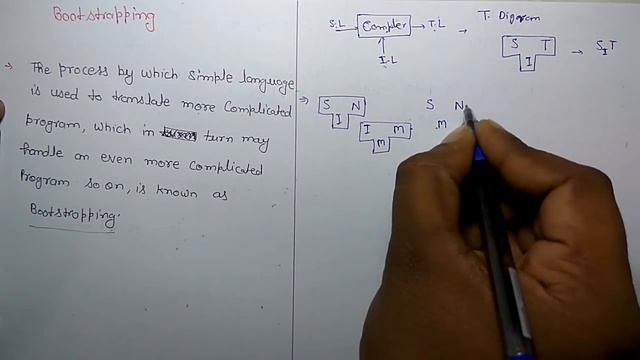 Bootstrapping
The process by which simple language
is used to translate more Complicated
program, which in turn may
handle an even more complicated
Program so on, is known as
Bootstrapping.
S.L Compler T.L
I.L
T. Digram
S T
I
S I T
S N
I
I M
M
S N
M